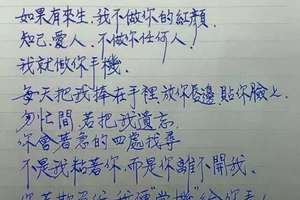 如果有來生,我不做你的紅顏,
知己,愛人,不做你任何人,
我就做你手機,
每天把我捧在手裡放你唇邊貼你臉上,
匆忙間若把我遺忘,
你會著急的四處找尋
不是我粘著你,而是你離不開我,